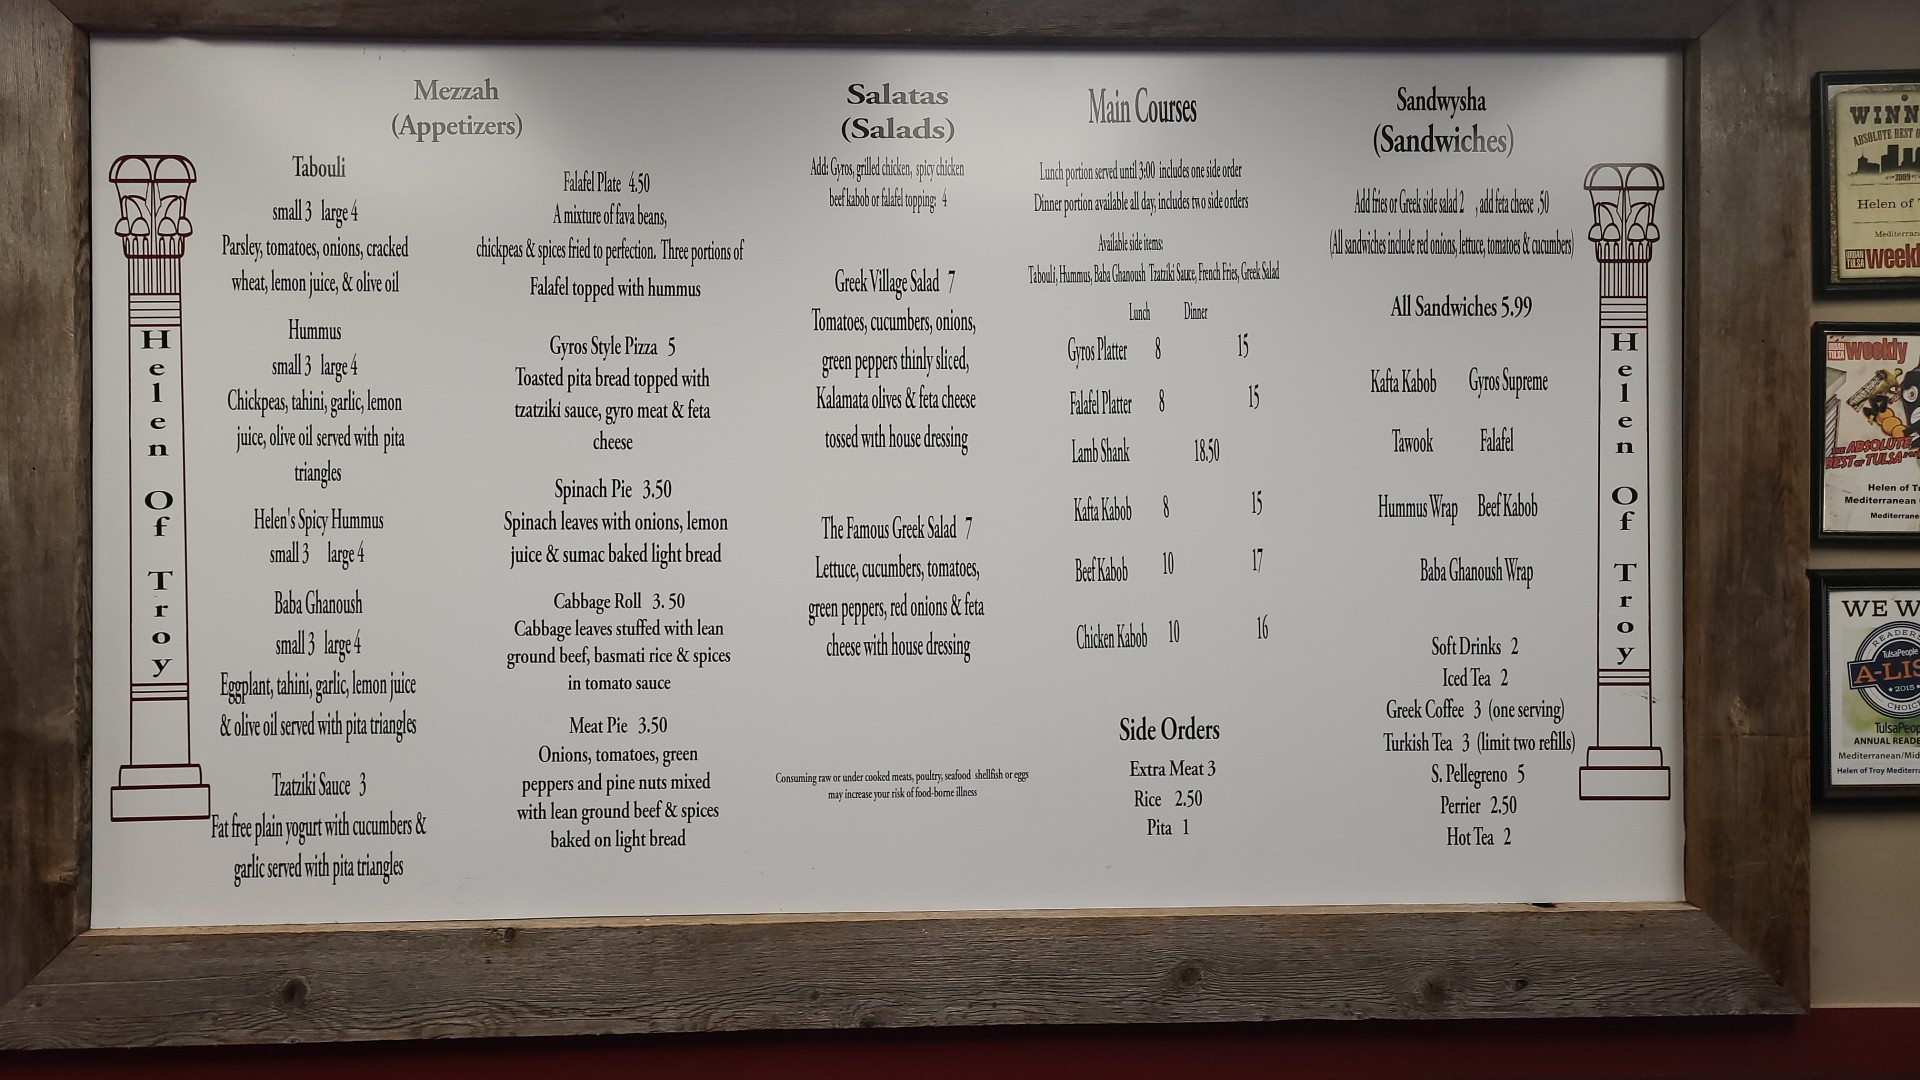 Helen Of Troy
Mezzah
(Appetizers)
Tabouli
small 3 large 4
Parsley, tomatoes, onions, cracked
wheat, lemon juice, & olive oil
Hummus
small 3 large 4
Chickpeas, tahini, garlic, lemon
juice, olive oil served with pita
triangles
Helen's Spicy Hummus
small 3 large 4
Baba Ghanoush
small 3 large 4
Eggplant, tahini, garlic, lemon juice
& olive oil served with pita triangles
Tzatziki Sauce 3
Fat free plain yogurt with cucumbers &
garlic served with pita triangles
Falafel Plate 4.50
A mixture of fava beans,
chickpeas & spices fried to perfection. Three portions of
Falafel topped with hummus
Gyros Style Pizza 5
Toasted pita bread topped with
tzatziki sauce, gyro meat & feta
cheese
Spinach Pie 3.50
Spinach leaves with onions, lemon
juice & sumac baked light bread
Cabbage Roll 3. 50
Cabbage leaves stuffed with lean
ground beef, basmati rice & spices
in tomato sauce
Meat Pie 3.50
Onions, tomatoes, green
peppers and pine nuts mixed
with lean ground beef & spices
baked on light bread
Salatas
(Salads)
Add: Gyros, grilled chicken, spicy chicken
beef kabob or falafel topping: 4
Greek Village Salad 7
Tomatoes, cucumbers, onions,
green peppers thinly sliced,
Kalamata olives & feta cheese
tossed with house dressing
The Famous Greek Salad 7
Lettuce, cucumbers, tomatoes,
green peppers, red onions & feta
cheese with house dressing
Consuming raw or under cooked meats, poultry, seafood shellfish or eggs
may increase your risk of food-borne illness
Main Courses
Lunch portion served until 3:00 includes one side order
Dinner portion available all day, includes two side orders
Available side items:
Tabouli, Hummus, Baba Ghanoush Tzatziki Sauce, French Fries, Greek Salad
Lunch Dinner
Gyros Platter 8 15
Falafel Platter 8 15
Lamb Shank 18.50
Kafta Kabob 8 15
Beef Kabob 10 17
Chicken Kabob 10 16
Side Orders
Extra Meat 3
Rice 2.50
Pita 1
Sandwysha
(Sandwiches)
Add fries or Greek side salad 2 , add feta cheese .50
(All sandwiches include red onions, lettuce, tomatoes & cucumbers)
All Sandwiches 5.99
Kafta Kabob Gyros Supreme
Tawook Falafel
Hummus Wrap Beef Kabob
Baba Ghanoush Wrap
Soft Drinks 2
Iced Tea 2
Greek Coffee 3 (one serving)
Turkish Tea 3 (limit two refills)
S. Pellegreno 5
Perrier 2.50
Hot Tea 2
Helen Of Troy
WINN
ABSOLUTE BEST
2009
Helen of
Mediterran
URBAN TULSA weekl
URBAN TULSA weekly
THE ABSOLUTE
BEST of TULSA
Helen of
Mediterranean
Mediterrane
WE W
READERS
TulsaPeople
A-LIS
2015
CHOIC
TulsaPeop
ANNUAL READE
Mediterranean/Mid
Helen of Troy Mediterra